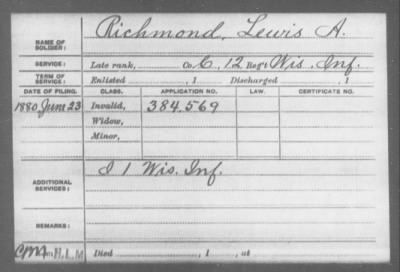 NAME OF SOLDIER: Richmond, Lewis A.
SERVICE: Late rank, Co. C, 12 Reg't Wis. Inf.
TERM OF SERVICE: Enlisted , 1 Discharged , 1
DATE OF FILING. CLASS. APPLICATION NO. LAW. CERTIFICATE NO.
1880 June 23 Invalid, 384.569
Widow,
Minor,
ADDITIONAL SERVICES: I 1 Wis. Inf.
REMARKS:
H.L.M Died , 1 , at